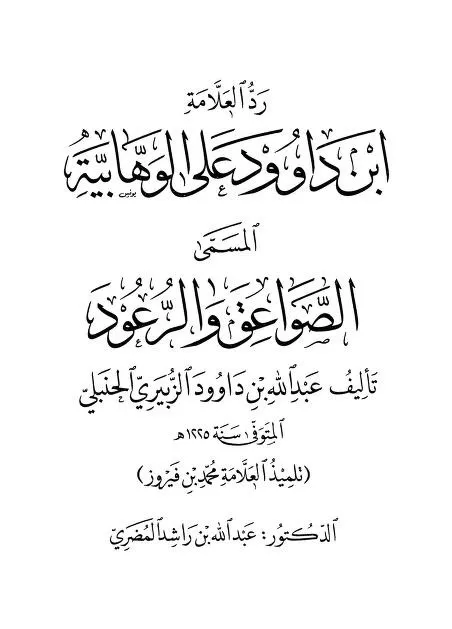 رَدُّ العَلَّامَةِ
ابْنِ دَاوُودَ عَلَى الوَهَّابِيَّةِ
يونس
المُسَمَّى
الصَّوَاعِقُ وَالرُّعُودُ
تَأْلِيفُ عَبْدِ اللهِ بْنِ دَاوُودَ الزُّبَيْرِيِّ الحَنْبَلِيِّ
المُتَوَفَّى سَنَةَ ١٢٢٥هـ
(تِلْمِيذُ العَلَّامَةِ مُحَمَّدِ بْنِ فَيْرُوز)
الدُّكْتُورُ: عَبْدُ اللهِ بْنُ رَاشِدٍ المُضَرِيّ